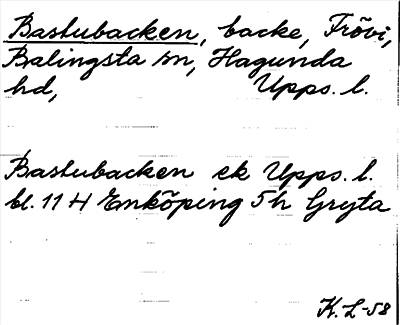 Bastubacken, backe, Frövi,
Balingsta sn, Hagunda
hd, Upps. l.
Bastubacken ek Upps. l.
bl. 11 H Enköping 5h Gryta
K. L -58